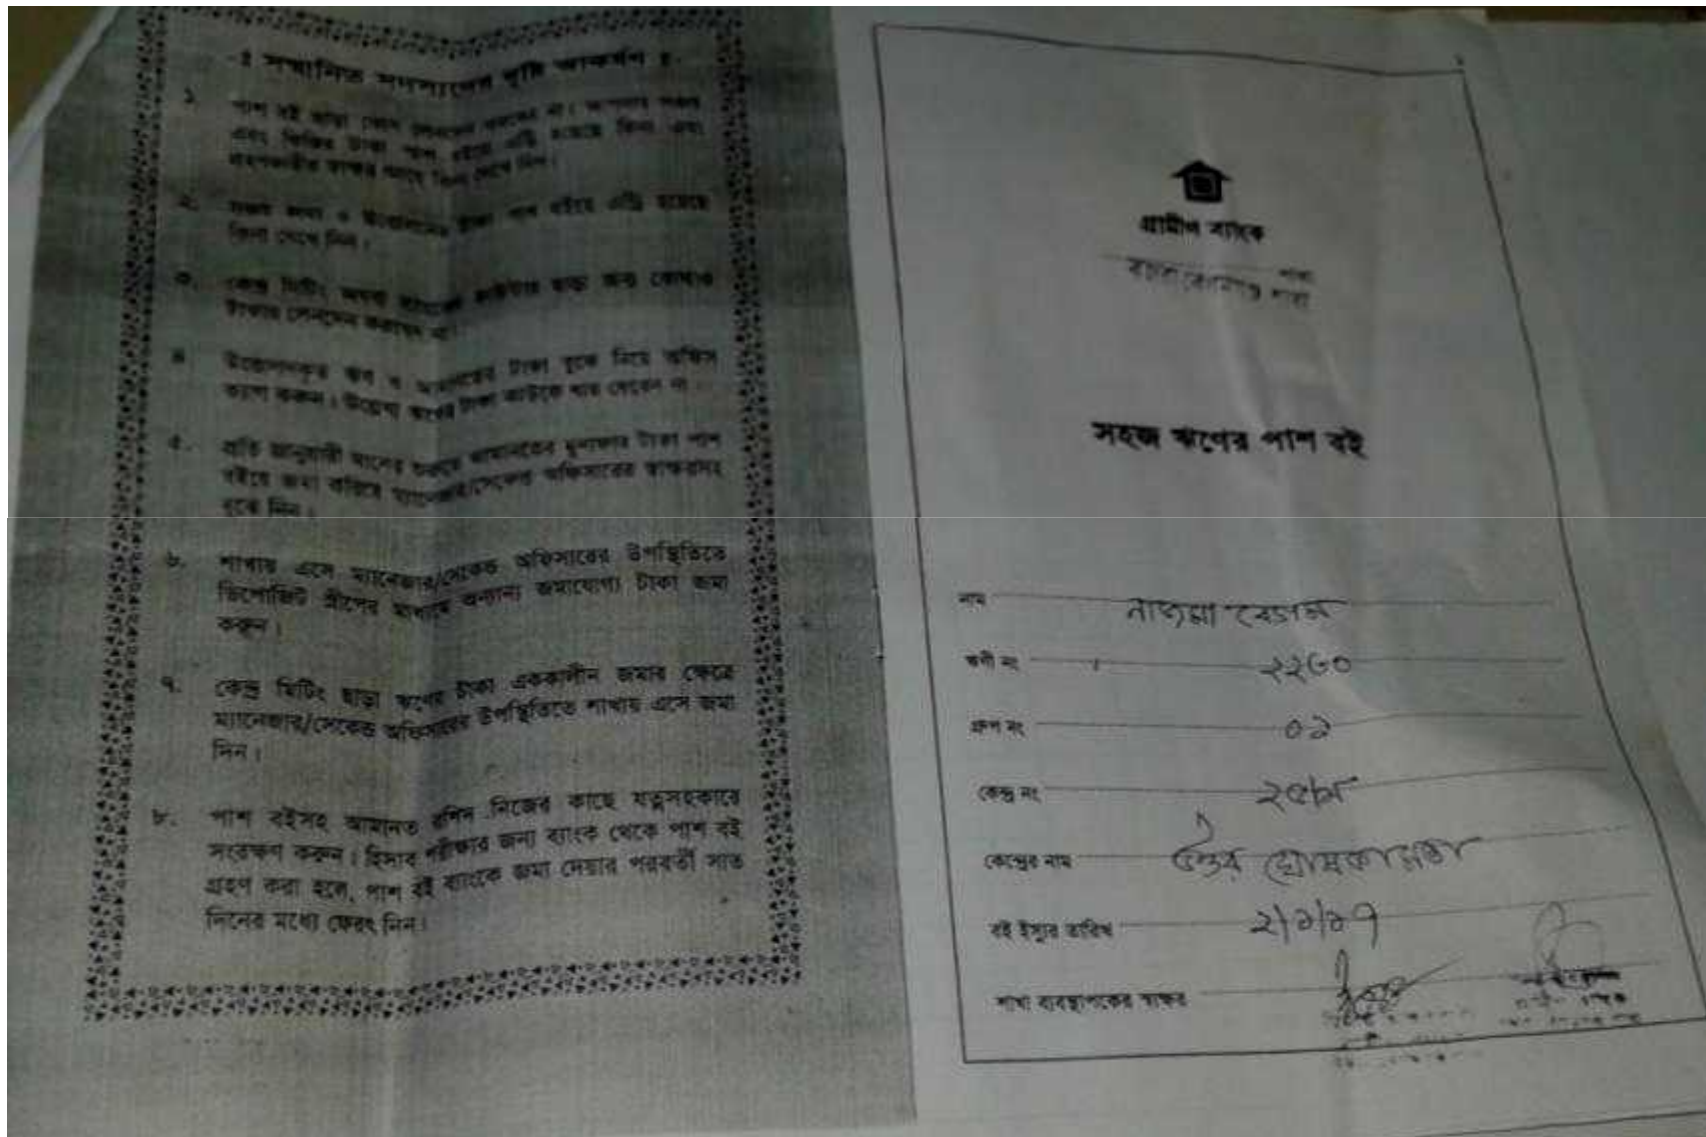 -ঃ সম্মানিত সদস্যদের দৃষ্টি আকর্ষণ ঃ-
১. পাশ বই ছাড়া কোন লেনদেন করবেন না। আপনার সঞ্চয়
এবং কিস্তির টাকা পাশ বইয়ে এন্ট্রি হয়েছে কিনা এবং
স্বাক্ষর আছে কিনা দেখে নিন।
২. সঞ্চয় জমা ও উত্তোলনের টাকা পাশ বইয়ে এন্ট্রি হয়েছে
কিনা দেখে নিন।
৩. কেন্দ্র মিটিং অথবা ব্যাংকের কাউন্টার ছাড়া অন্য কোথাও
টাকার লেনদেন করবেন না।
৪. উত্তোলনকৃত ঋণ ও আমানতের টাকা বুঝে নিয়ে অফিস
ত্যাগ করুন। উত্তোলিত ঋণের টাকা কাউকে ধার দেবেন না।
৫. প্রতি জানুয়ারী মাসের শুরুতে আমানতের মুনাফার টাকা পাশ
বইয়ে জমা করিয়ে ম্যানেজার/সেকেন্ড অফিসারের স্বাক্ষরসহ
বুঝে নিন।
৬. শাখায় এসে ম্যানেজার/সেকেন্ড অফিসারের উপস্থিতিতে
ডিপোজিট স্লীপের মাধ্যমে অন্যান্য জমাযোগ্য টাকা জমা
করুন।
৭. কেন্দ্র মিটিং ছাড়া ঋণের টাকা এককালীন জমার ক্ষেত্রে
ম্যানেজার/সেকেন্ড অফিসারের উপস্থিতিতে শাখায় এসে জমা
দিন।
৮. পাশ বইসহ আমানত রশিদ নিজের কাছে যত্নসহকারে
সংরক্ষণ করুন। হিসাব পরীক্ষার জন্য ব্যাংক থেকে পাশ বই
গ্রহণ করা হলে, পাশ বই ব্যাংকে জমা দেয়ার পরবর্তী সাত
দিনের মধ্যে ফেরৎ নিন।
গ্রামীণ ব্যাংক
শাখা
সহজ ঋণের পাশ বই
নাম নাজমা বেগম
ঋণী নং ২২৩০
গ্রুপ নং ০১
কেন্দ্র নং
কেন্দ্রের নাম উত্তর
বই ইস্যুর তারিখ ২/১/১৭
শাখা ব্যবস্থাপকের স্বাক্ষর